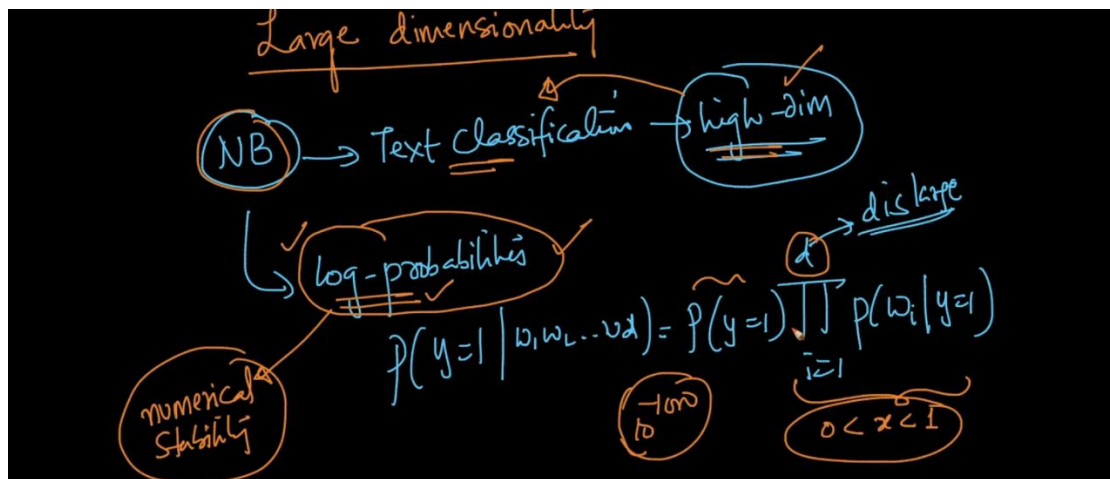 Large dimensionality
NB → Text Classification → high-dim
d → d is large
log-probabilities
P(y=1 | w₁ w₂ ... wd) = P(y=1) ∏ᵢ₌₁ᵈ P(wᵢ | y=1)
numerical
stability
10⁻¹⁰⁰⁰
0 < x < 1